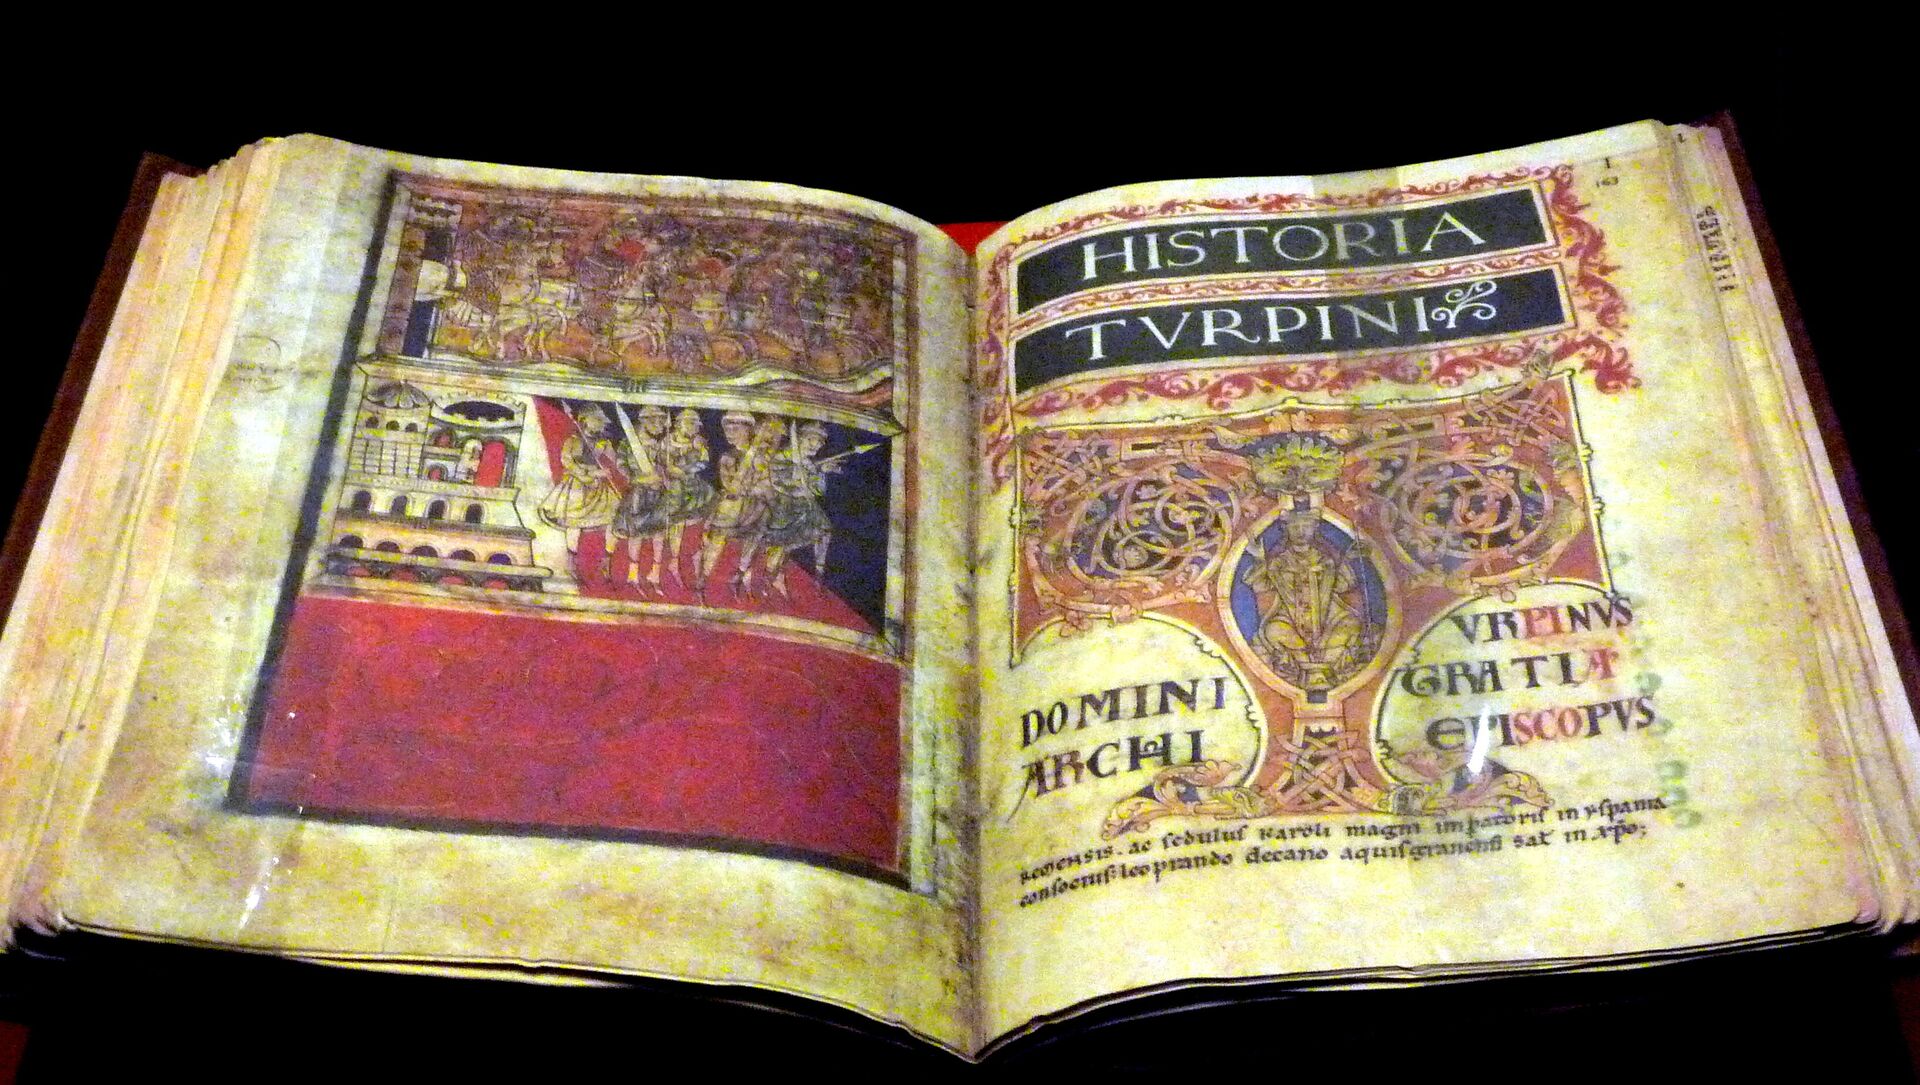 HISTORIA
TVRPINI
VRPINVS
DOMINI GRATIA
ARCHI EPISCOPVS
REMENSIS. ac sedulus Karoli magni impatoris in yspania
consocius: leoprando decano aquisgranensi sat in xpo;